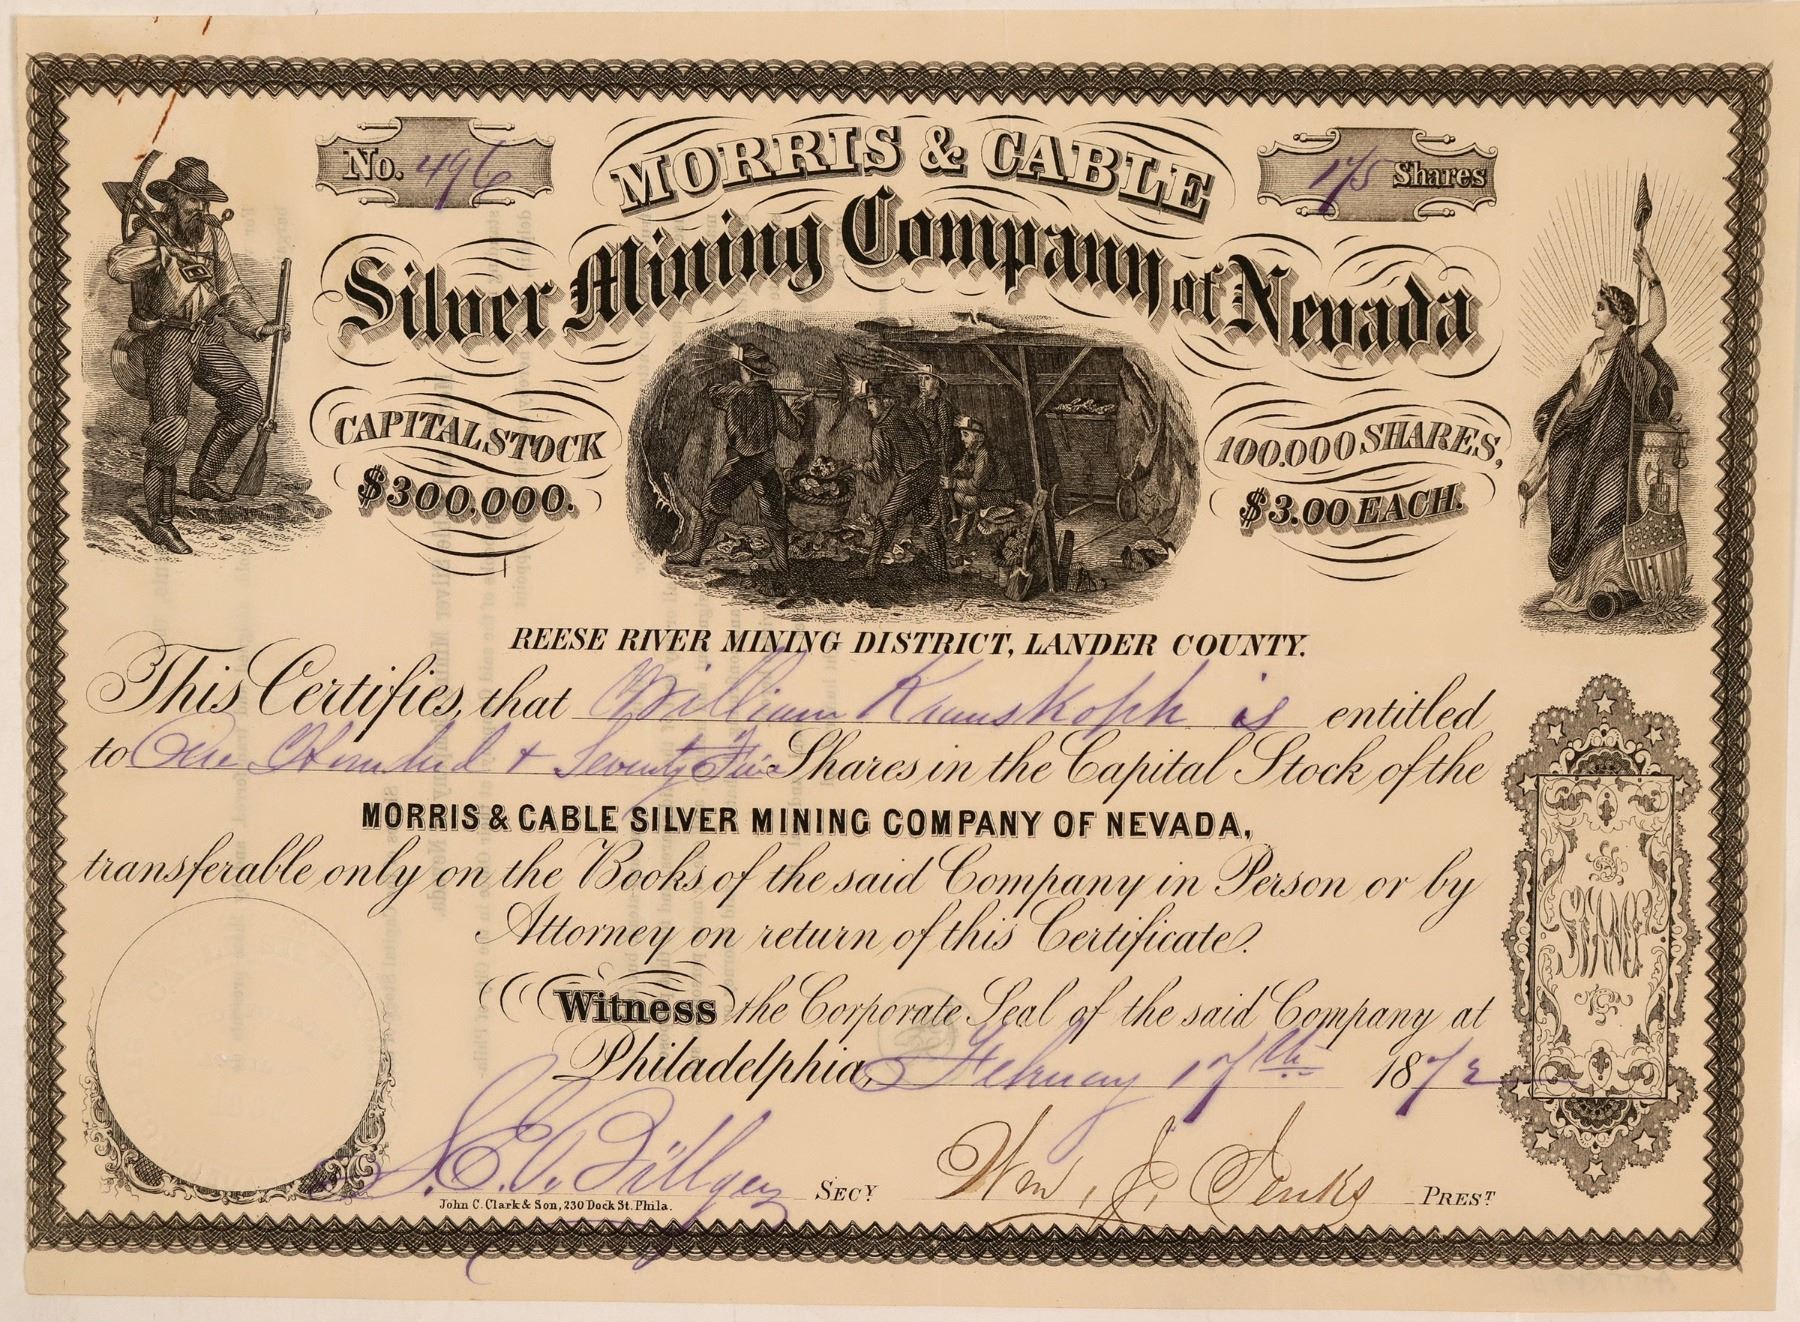 No. 496
MORRIS & CABLE
175 Shares
Silver Mining Company of Nevada
CAPITAL STOCK
$300,000.
100.000 SHARES,
$3.00 EACH.
REESE RIVER MINING DISTRICT, LANDER COUNTY.
This Certifies, that William Krauskoph is entitled
to One Hundred + Seventy Five Shares in the Capital Stock of the
MORRIS & CABLE SILVER MINING COMPANY OF NEVADA,
transferable only on the Books of the said Company in Person or by
Attorney on return of this Certificate.
Witness the Corporate Seal of the said Company at
Philadelphia, February 17th 1872
SHARES
Secy
Wm. J. Jenks Prest
John C. Clark & Son, 230 Dock St. Phila.